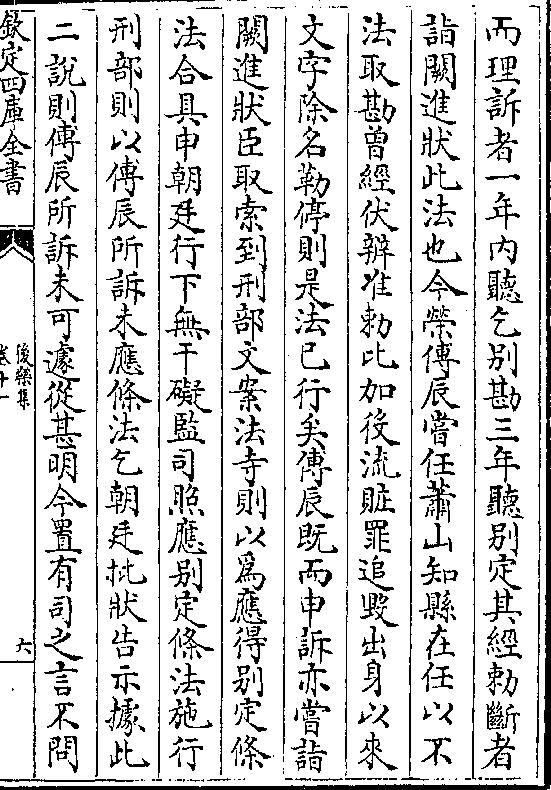 而理訴者一年内聽乞别勘三年聽别定其經勅斷者
詣闕進狀此法也今榮傅辰嘗任蕭山知縣在任以不
法取勘曾經伏辨准勅比加役流贓罪追毁出身以來
文字除名勒停則是法已行矣傅辰既而申訴亦嘗詣
闕進狀臣取索到刑部文案法寺則以為應得别定條
法合具申朝廷行下無干礙監司照應别定條法施行
刑部則以傅辰所訴未應條法乞朝廷批狀告示據此
二説則傅辰所訴未可遽從甚明今置有司之言不問
欽定四庫全書
後樂集
卷十一
六